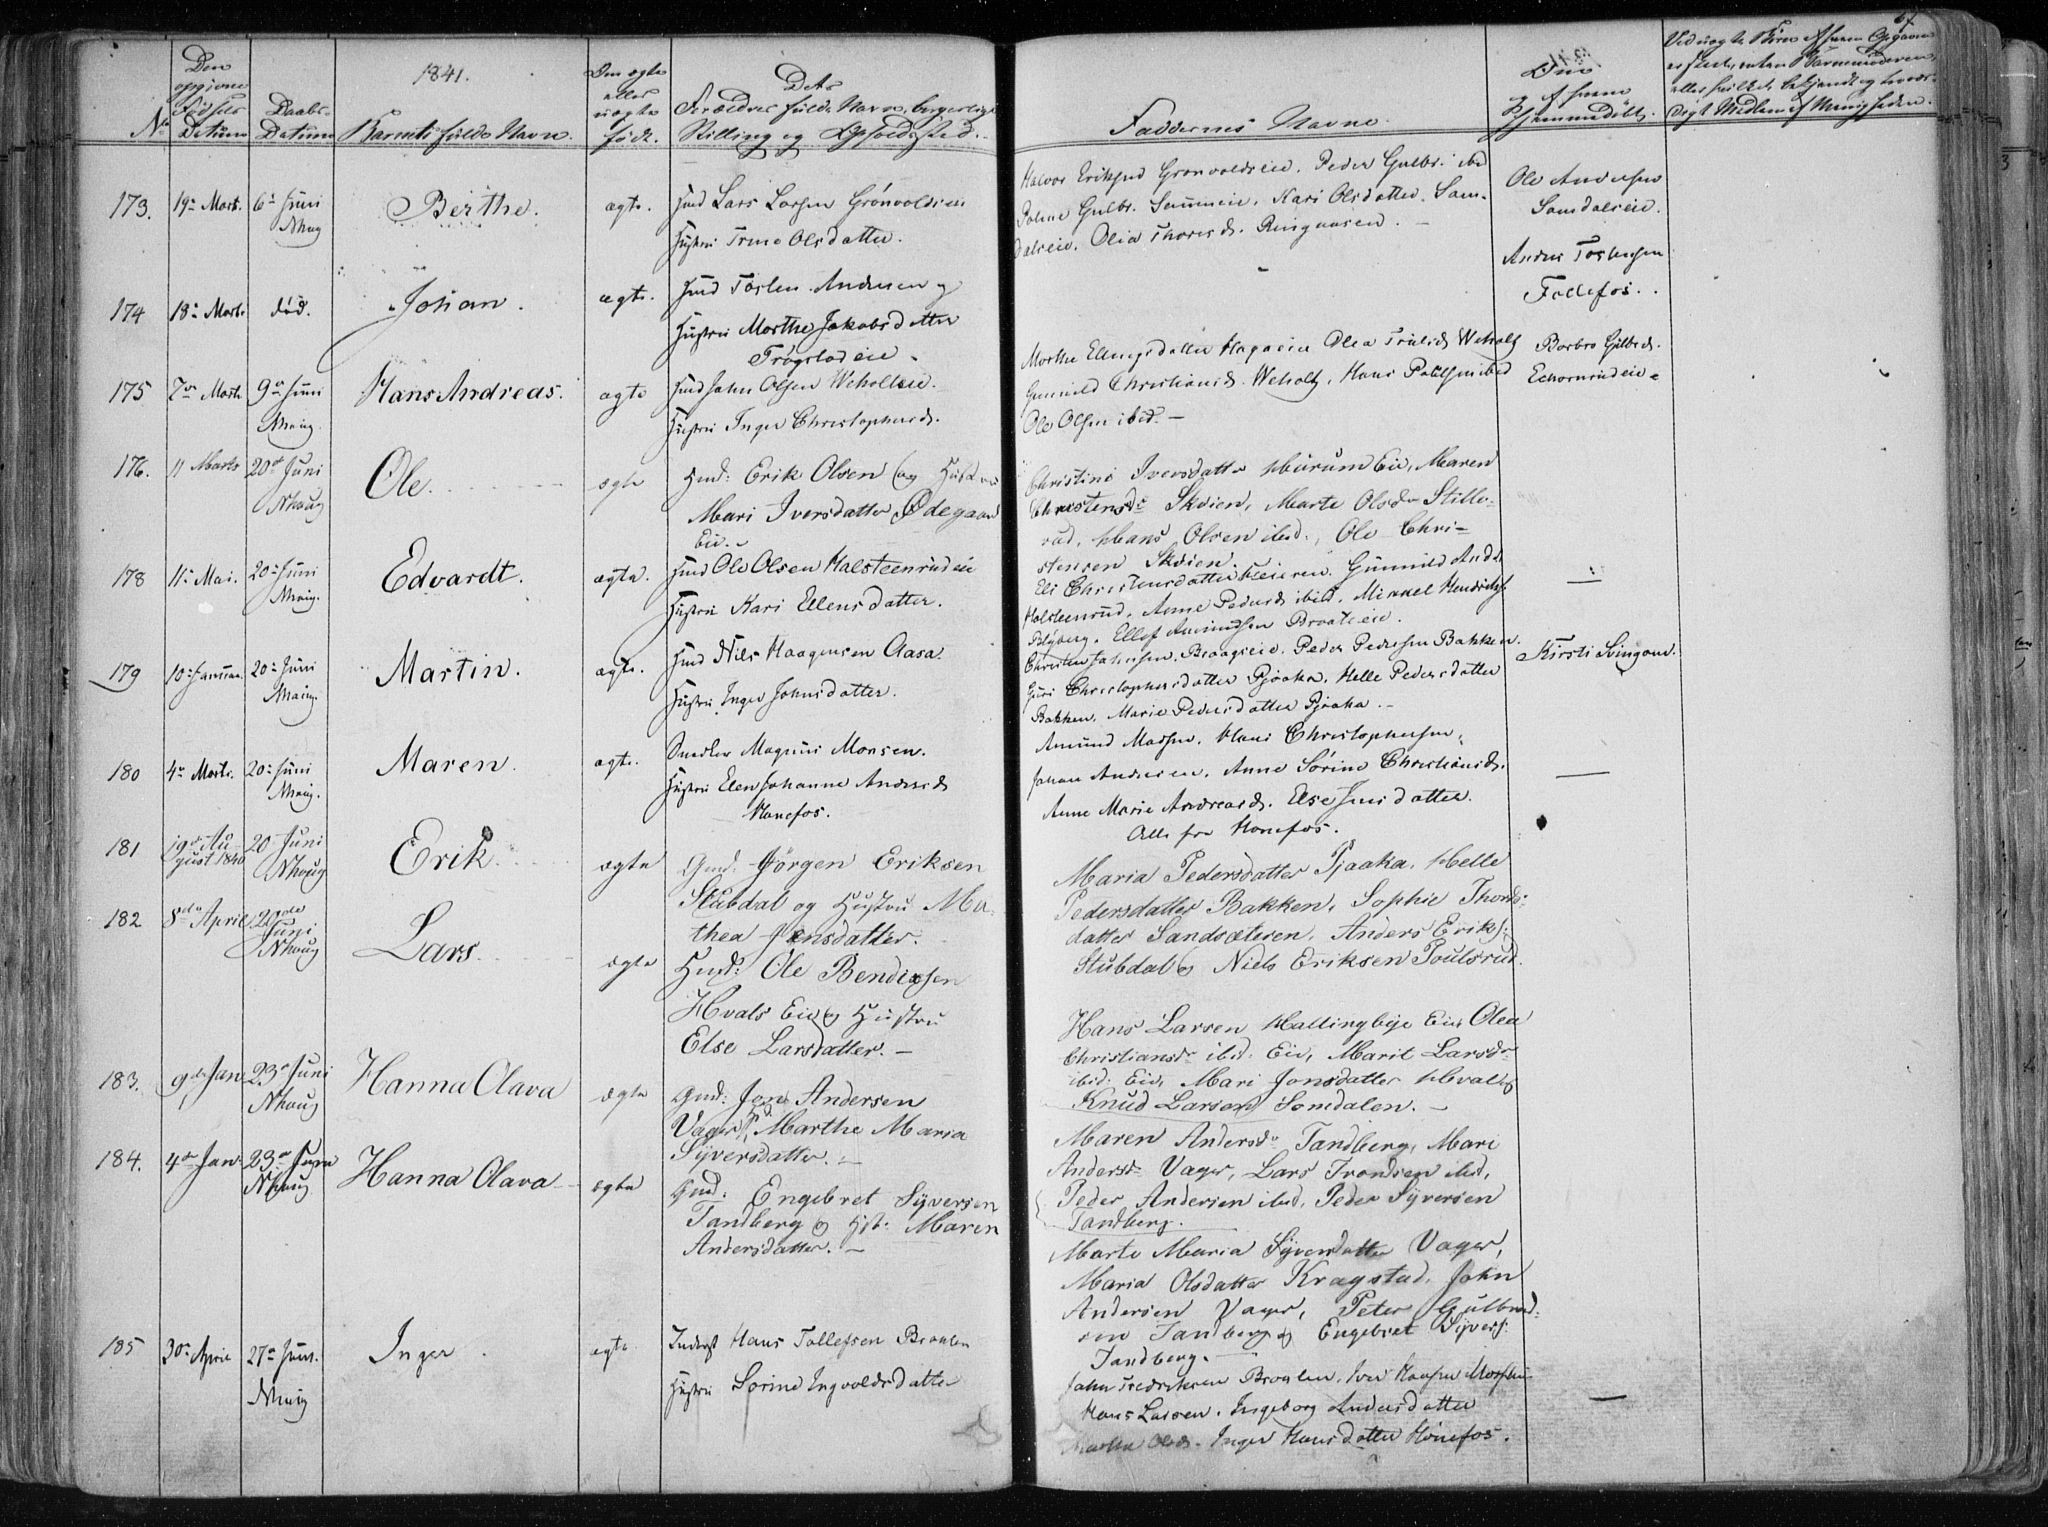 1841.
67
1841
No
Den opgivne Fødsels Datum
Daabs-Datum
Barnets fulde Navn.
Om ægte eller uægte født.
Dets Forældres fulde Navne, borgerlige Stilling og Opholdssted.
Faddernes Navne.
Om og af hvem Hjemmedøbt.
173.
19de Marts.
6te Juni
Nhoug
Berthe.
ægte.
Hmd Lars Larsen Grønvoldseie
Hustru Trine Olsdatter.
Halvor Eriksen Grønvoldseie. Peder Gulbr. ibd
Gulbr. Kari Olsdatter. Som-
dalseie. Olia Thoresd. Ringaasen.
Ole Andersen
Somdalseie.
174
18de Marts
død.
Johan.
ægte.
Hmd Tosten Andersen og
Hustru Marthe Jakobsdatter
Trøgstadeie.
Anders Tostensen
Follefos.
175
7de Marts
9de Juni
Nhoug.
Hans Andreas.
ægte
Hmd John Olsen Weholtseie.
Hustru Inger Christophersd.
Marthe Ellingsdatter Hagaeie Olea Trulsd Weholt
Gunnild Christiansd. Weholt, Hans Poulsen ibid
Ole Olsen ibid. —
Barbro Gulbrd.
Echornrudeie.
176.
11 Marts
20de Juni
Nhoug
Ole.
ægte
Hmd: Erik Olsen og Hustru
Mari Iversdatter Ødegaard
Eie.
Christine Iversdatter Hurum Eie, Maren
Christensdr Skoien, Marte Olsdr Stille-
rud, Hans Olsen ibid., Ole Chri-
stensen Skoien.
178
11te Mai.
20de Juni
Nhoug.
Edvardt.
ægte.
Hmd Ole Olsen Halsteenrudeie
Hustru Kari Ellensdatter.
Eli Christensdatter Gunnild Andd.
Halsteenrud, Anne Pedersd ibid. Mikkel Hendriks.
Blyberg. Ellef Amundsen Braateeie.
—
179
10de Januar.
20de Juni
Nhoug.
Martin.
ægte.
Hmd Niels Haagensen Aasa.
Hustru Inger Johnsdatter.
Christen Johnsen. Peder Pedersen Bakken.
Guri Christophersdatter Pjaaka. Helle Pedersdatter
Bakken. Marie Pedersdatter Pjaaka. —
Kirsti Svingom.
180
4de Marts.
20de Juni
Nhoug.
Maren.
ægte.
Snedker Magnus Monsen.
Hustru Elen Johanne Andersd
Hønefos.
Amund Madsen. Hans Christophersen,
Johan Andersen. Anne Sørine Christiansd.
Anne Marie Andreasd. Else Jensdatter.
Alle fra Hønefos.
—
181
19de Au-
gust 1840
20 Juni
Nhoug
Erik
ægte
Gmd: Jörgen Eriksen
Stubdal og Hustru Ma-
thea Jensdatter.
Maria Pedersdatter Pjaaka, Helle
Pedersdatter Bakken, Sophie Thords-
datter Sandsæteren, Anders Eriks:
Stubdal og Niels Eriksen Poulsrud.
182
8de April
20de
Juni
Nhoug
Lars.
ægte
Hmd: Ole Bendixsen
Hvals Eie og Hustru
Else Larsdatter. —
Hans Larsen Hallingbye Eie, Olea
Christiansdr ibid: Eie, Marit Larsdr
ibid: Eie, Mari Jonsdatter Hval og
Knud Larsen Somdalen. —
183.
9de Jan
23de Juni
Nhoug
Hanna Olava
ægte
Gmd: Jon Andersen
Vager, Marthe Maria
Syversdatter. —
Maren Andersdr Tandberg, Mari
Andersdr Vager, Lars Trondsen ibid,
Peder Andersen ibid, Peder Syversen
Tandberg.
184.
4de Jan:
23de Juni
Nhoug
Hanna Olava
ægte
Gmd: Engebret Syversen
Tandberg og Hst: Maren
Andersdatter. —
Marte Maria Syversdatter Vager,
Maria Olsdatter Kragstad, John
Andersen Vager, Peter Gulbrand-
sen Tandberg og Engebret Syvers:
Tandberg.
185
30te April
27de Juni.
Nhoug
Inger.
ægte.
Inderst Hans Tollefsen Braaten
Hustru Sørine Ingvoldsdatter
John Fredriksen Braaten. Iver Hansen
Hans Larsen. Ingeborg Andersdatter
Marthe Olsd. Inger Hansdatter Hønefos.
—